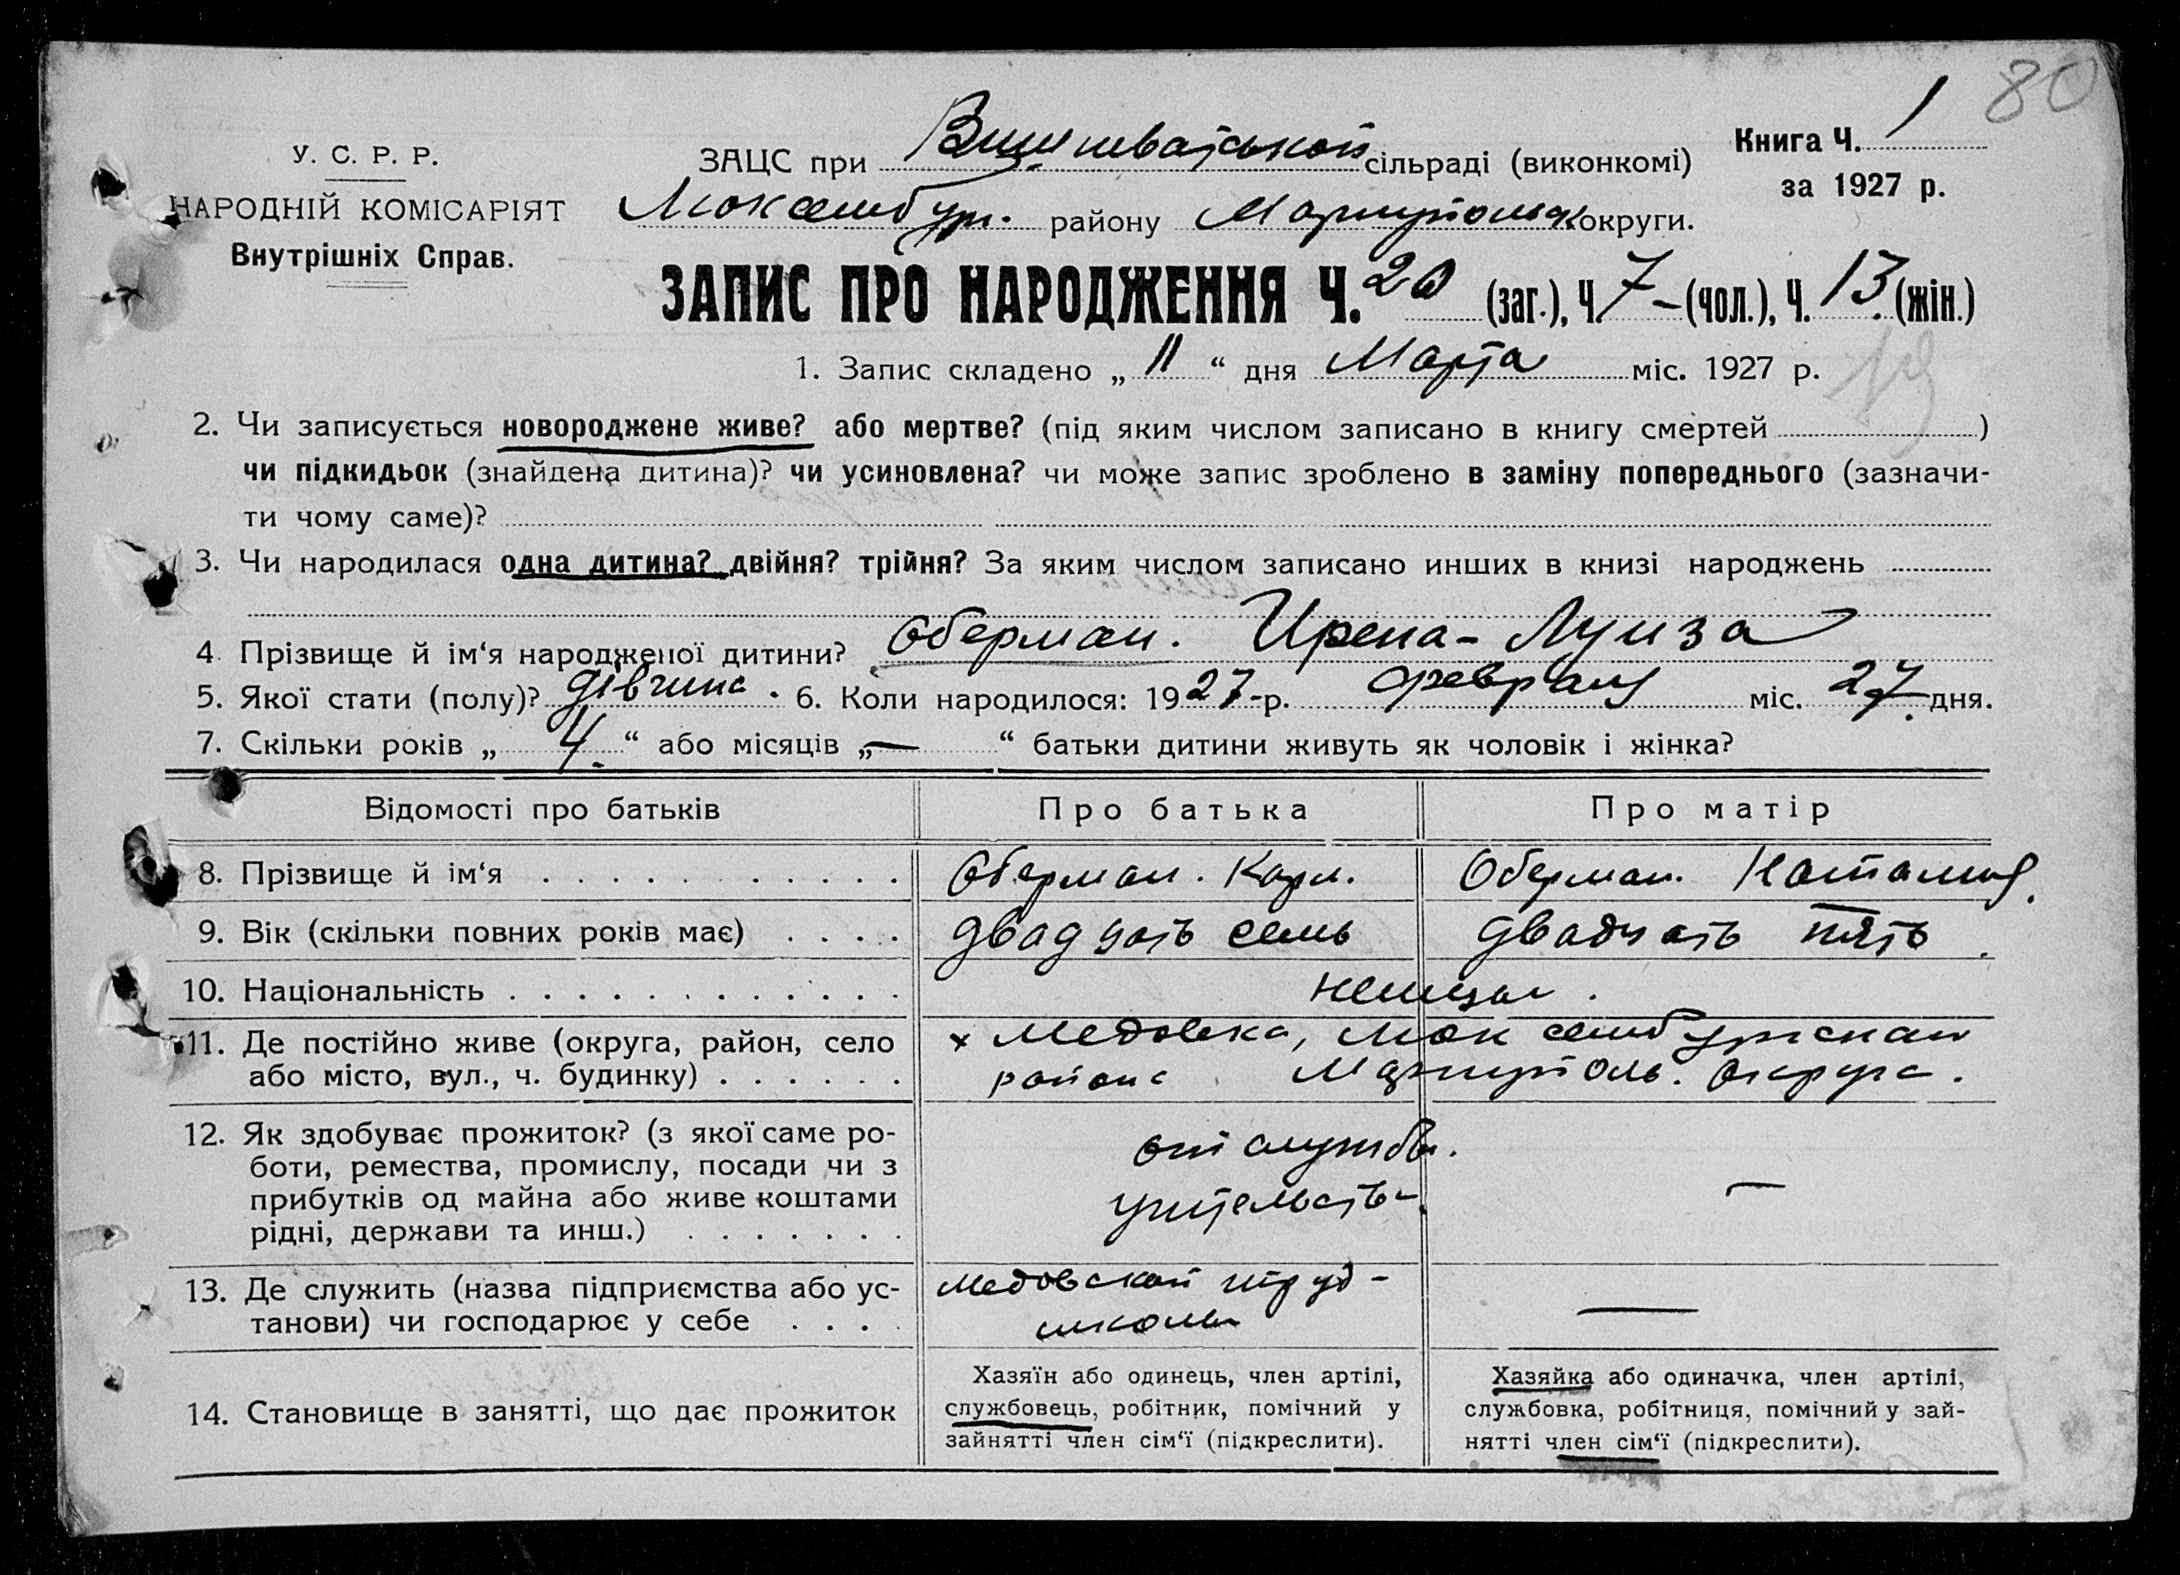 80
У. С. Р. Р.
НАРОДНІЙ КОМІСАРІЯТ
Внутрішніх Справ.
ЗАЦС при сільраді (виконкомі)
Книга Ч. 1
за 1927 р.
Люксембур. району Мариупольск округи.
ЗАПИС ПРО НАРОДЖЕННЯ Ч. 20 (заг.), Ч 7 - (чол.), Ч. 13 (жін.)
1. Запис складено „ 11 “ дня Марта міс. 1927 р.
19
2. Чи записується новороджене живе? або мертве? (під яким числом записано в книгу смертей )
чи підкидьок (знайдена дитина)? чи усиновлена? чи може запис зроблено в заміну попереднього (зазначи-
ти чому саме)?
3. Чи народилася одна дитина? двійня? трійня? За яким числом записано инших в книзі народжень
4. Прізвище й ім‘я народженої дитини? Оберман. Ирена - Луиза
5. Якої стати (полу)? дівчина . 6. Коли народилося: 19 27 - р. февраля міс. 27 дня.
7. Скільки років „ 4. “ або місяців „ — “ батьки дитини живуть як чоловік і жінка?
Відомості про батьків Про батька Про матір
8. Прізвище й ім‘я . . . . . . . . . . . Оберман. Карл. Оберман. Наталия.
9. Вік (скільки повних років має) . . . . двадцать семь двадцать пять
10. Національність . . . . . . . . . . . . немцы.
11. Де постійно живе (округа, район, село х Медовка, Люксембургскаго
або місто, вул., ч. будинку) . . . . . . района Мариуполь. округа.
12. Як здобуває прожиток? (з якої саме ро-
боти, ремества, промислу, посади чи з от службы.
прибутків од майна або живе коштами учительств —
рідні, держави та инш.) . . . . . . .
13. Де служить (назва підприємства або ус- Медовской труд -
танови) чи господарює у себе . . . . школы —
Хазяїн або одинець, член артілі, Хазяйка або одиначка, член артілі,
14. Становище в занятті, що дає прожиток службовець, робітник, помічний у службовка, робітниця, помічний у зай-
зайнятті член сім‘ї (підкреслити). нятті член сім‘ї (підкреслити).